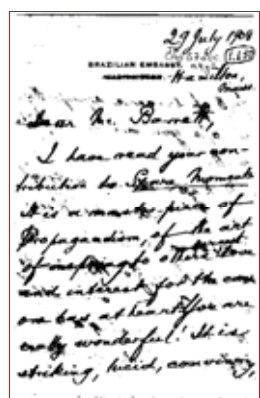 29 July 1908
BRAZILIAN EMBASSY
Hamilton,
Mass
Dear Mr. Barrett,
I have read your con-
tribution to Spare Moments
It is a master-piece of
Propagandism, of the art
of to others love
and interest for the cause
one has at heart. You are
really wonderful! It is
striking, lucid, convincing,